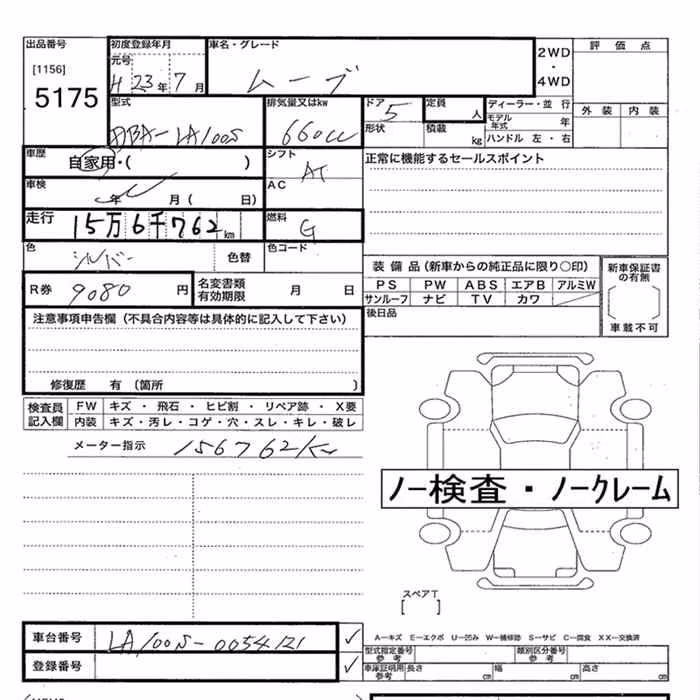 出品番号 初度登録年月 車名・グレード
[1156] 元号 H 23年 7月 ムーブ 2WD・4WD 評価点
5175
型式 DBA-LA100S 排気量又はkw 660cc ドア 5 定員 人 ディーラー・並行 外装 内装
形状 積載 kg モデル年式 年
ハンドル 左・右
車歴 自家用・( ) シフト AT 正常に機能するセールスポイント
車検 年 月( 日) AC
走行 15万6千762km 燃料 G
色 シルバー 色替 色コード
装備品(新車からの純正品に限り〇印) 新車保証書の有無
R券 9080円 名変書類有効期限 月 日 PS PW ABS エアB アルミW
サンルーフ ナビ TV カワ
車載不可
注意事項申告欄(不具合内容等は具体的に記入して下さい) 後日品
修復歴 有 〔箇所 〕
検査員記入欄 FW キズ・飛石・ヒビ割・リペア跡・X要
内装 キズ・汚レ・コゲ・穴・スレ・キレ・破レ
メーター指示 156762km
ノー検査・ノークレーム
スペアT
[ ]
車台番号 LA100S-0054121 ✓ A―キズ E―エクボ U―凹み W―補修跡 S―サビ C―腐食 XX―交換済
型式指定番号 参考 類別区分番号 参考
登録番号 ✓ 車庫証明用 参考 長さ cm 幅 cm 高さ cm